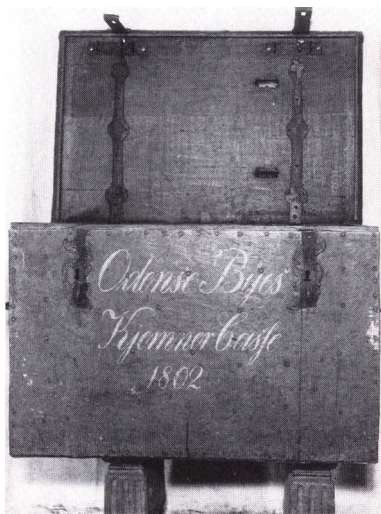 Odense Byes
Kjemner Casse
1802